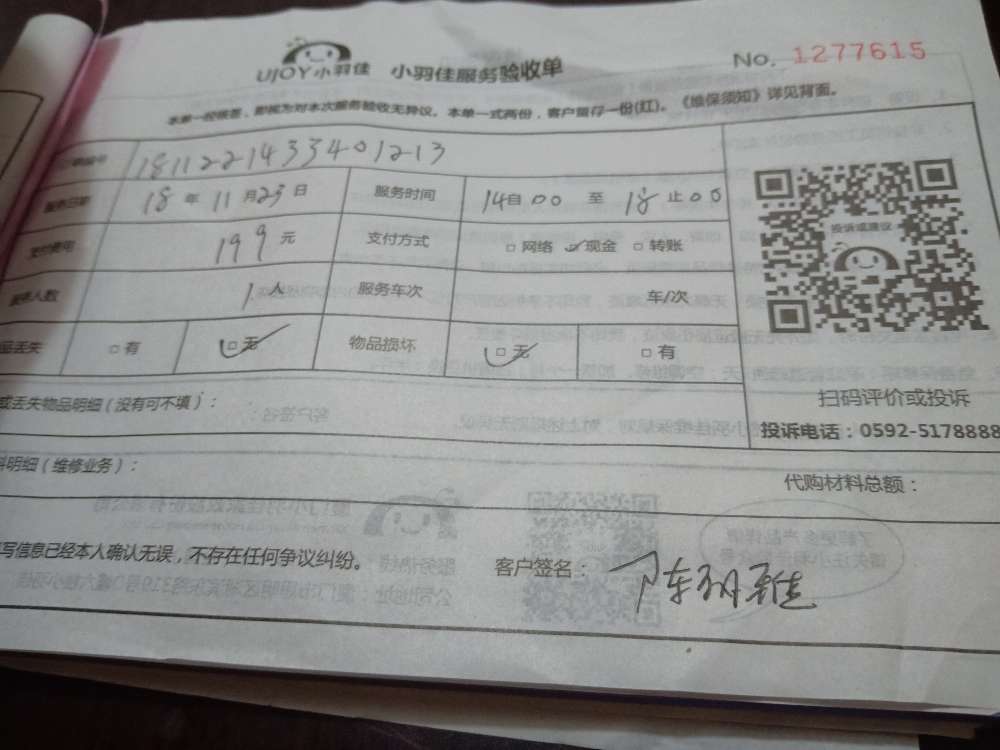 UJOY小羽佳 小羽佳服务验收单 No. 1277615
本单一经核签，即视为对本次服务验收无异议。本单一式两份，客户留存一份(红)。《维保须知》详见背面。
编号 1811221433401213
服务日期 18 年 11 月 23 日 服务时间 14 自 00 至 18 止 00
支付费用 199 元 支付方式 □网络 ☑现金 □转账
服务人数 1 人 服务车次 车/次
品丢失 □有 ☑无 物品损坏 ☑无 □有
投诉或建议
扫码评价或投诉
投诉电话：0592-5178888
或丢失物品明细（没有可不填）：
料明细（维修业务）： 代购材料总额：
写信息已经本人确认无误，不存在任何争议纠纷。 客户签名：